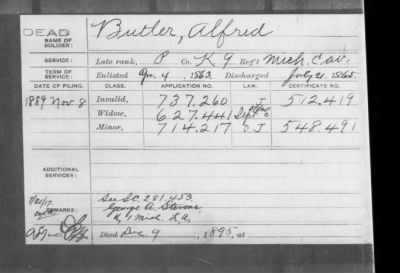 DEAD
NAME OF SOLDIER: Butler, Alfred
SERVICE: Late rank, P Co. K, 9 Reg't Mich. Cav.
TERM OF SERVICE: Enlisted Apr. 4, 1863. Discharged July 21, 1865.
DATE OF FILING. CLASS. APPLICATION NO. LAW. CERTIFICATE NO.
1889 Nov. 8 Invalid, 737.260 J 512.419
Widow, 627.441
Minor, 714.217 J 548.491
ADDITIONAL SERVICES:
REMARKS: See S.C. 281,453.
George A.
1 Mich. L.A.
Died Dec 9, 1895, at